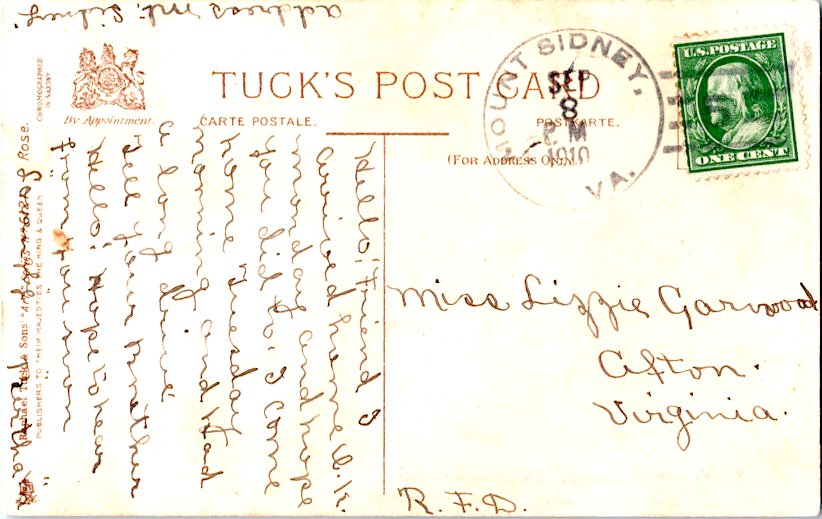 TUCK'S POST CARD
CARTE POSTALE.
POSTKARTE.
(FOR ADDRESS ONLY.)
By Appointment.
CHROMOGRAPHED
IN SAXONY
MOUNT SIDNEY,
VA.
SEP
8
P M
1910
U.S. POSTAGE
ONE CENT
Miss Lizzie Garwood
Afton.
Virginia.
R. F. D.
Hello! Friend I
arrived home O.K.
monday and hope
you did to. I come
home Tuesday
morning and Had
a long drive.
Tell your brother
Hello! Hope to hear
from you soon
address Mt. Sidney.
Rose.
Raphael Tuck & Sons'
PUBLISHERS TO THEIR MAJESTIES THE KING & QUEEN